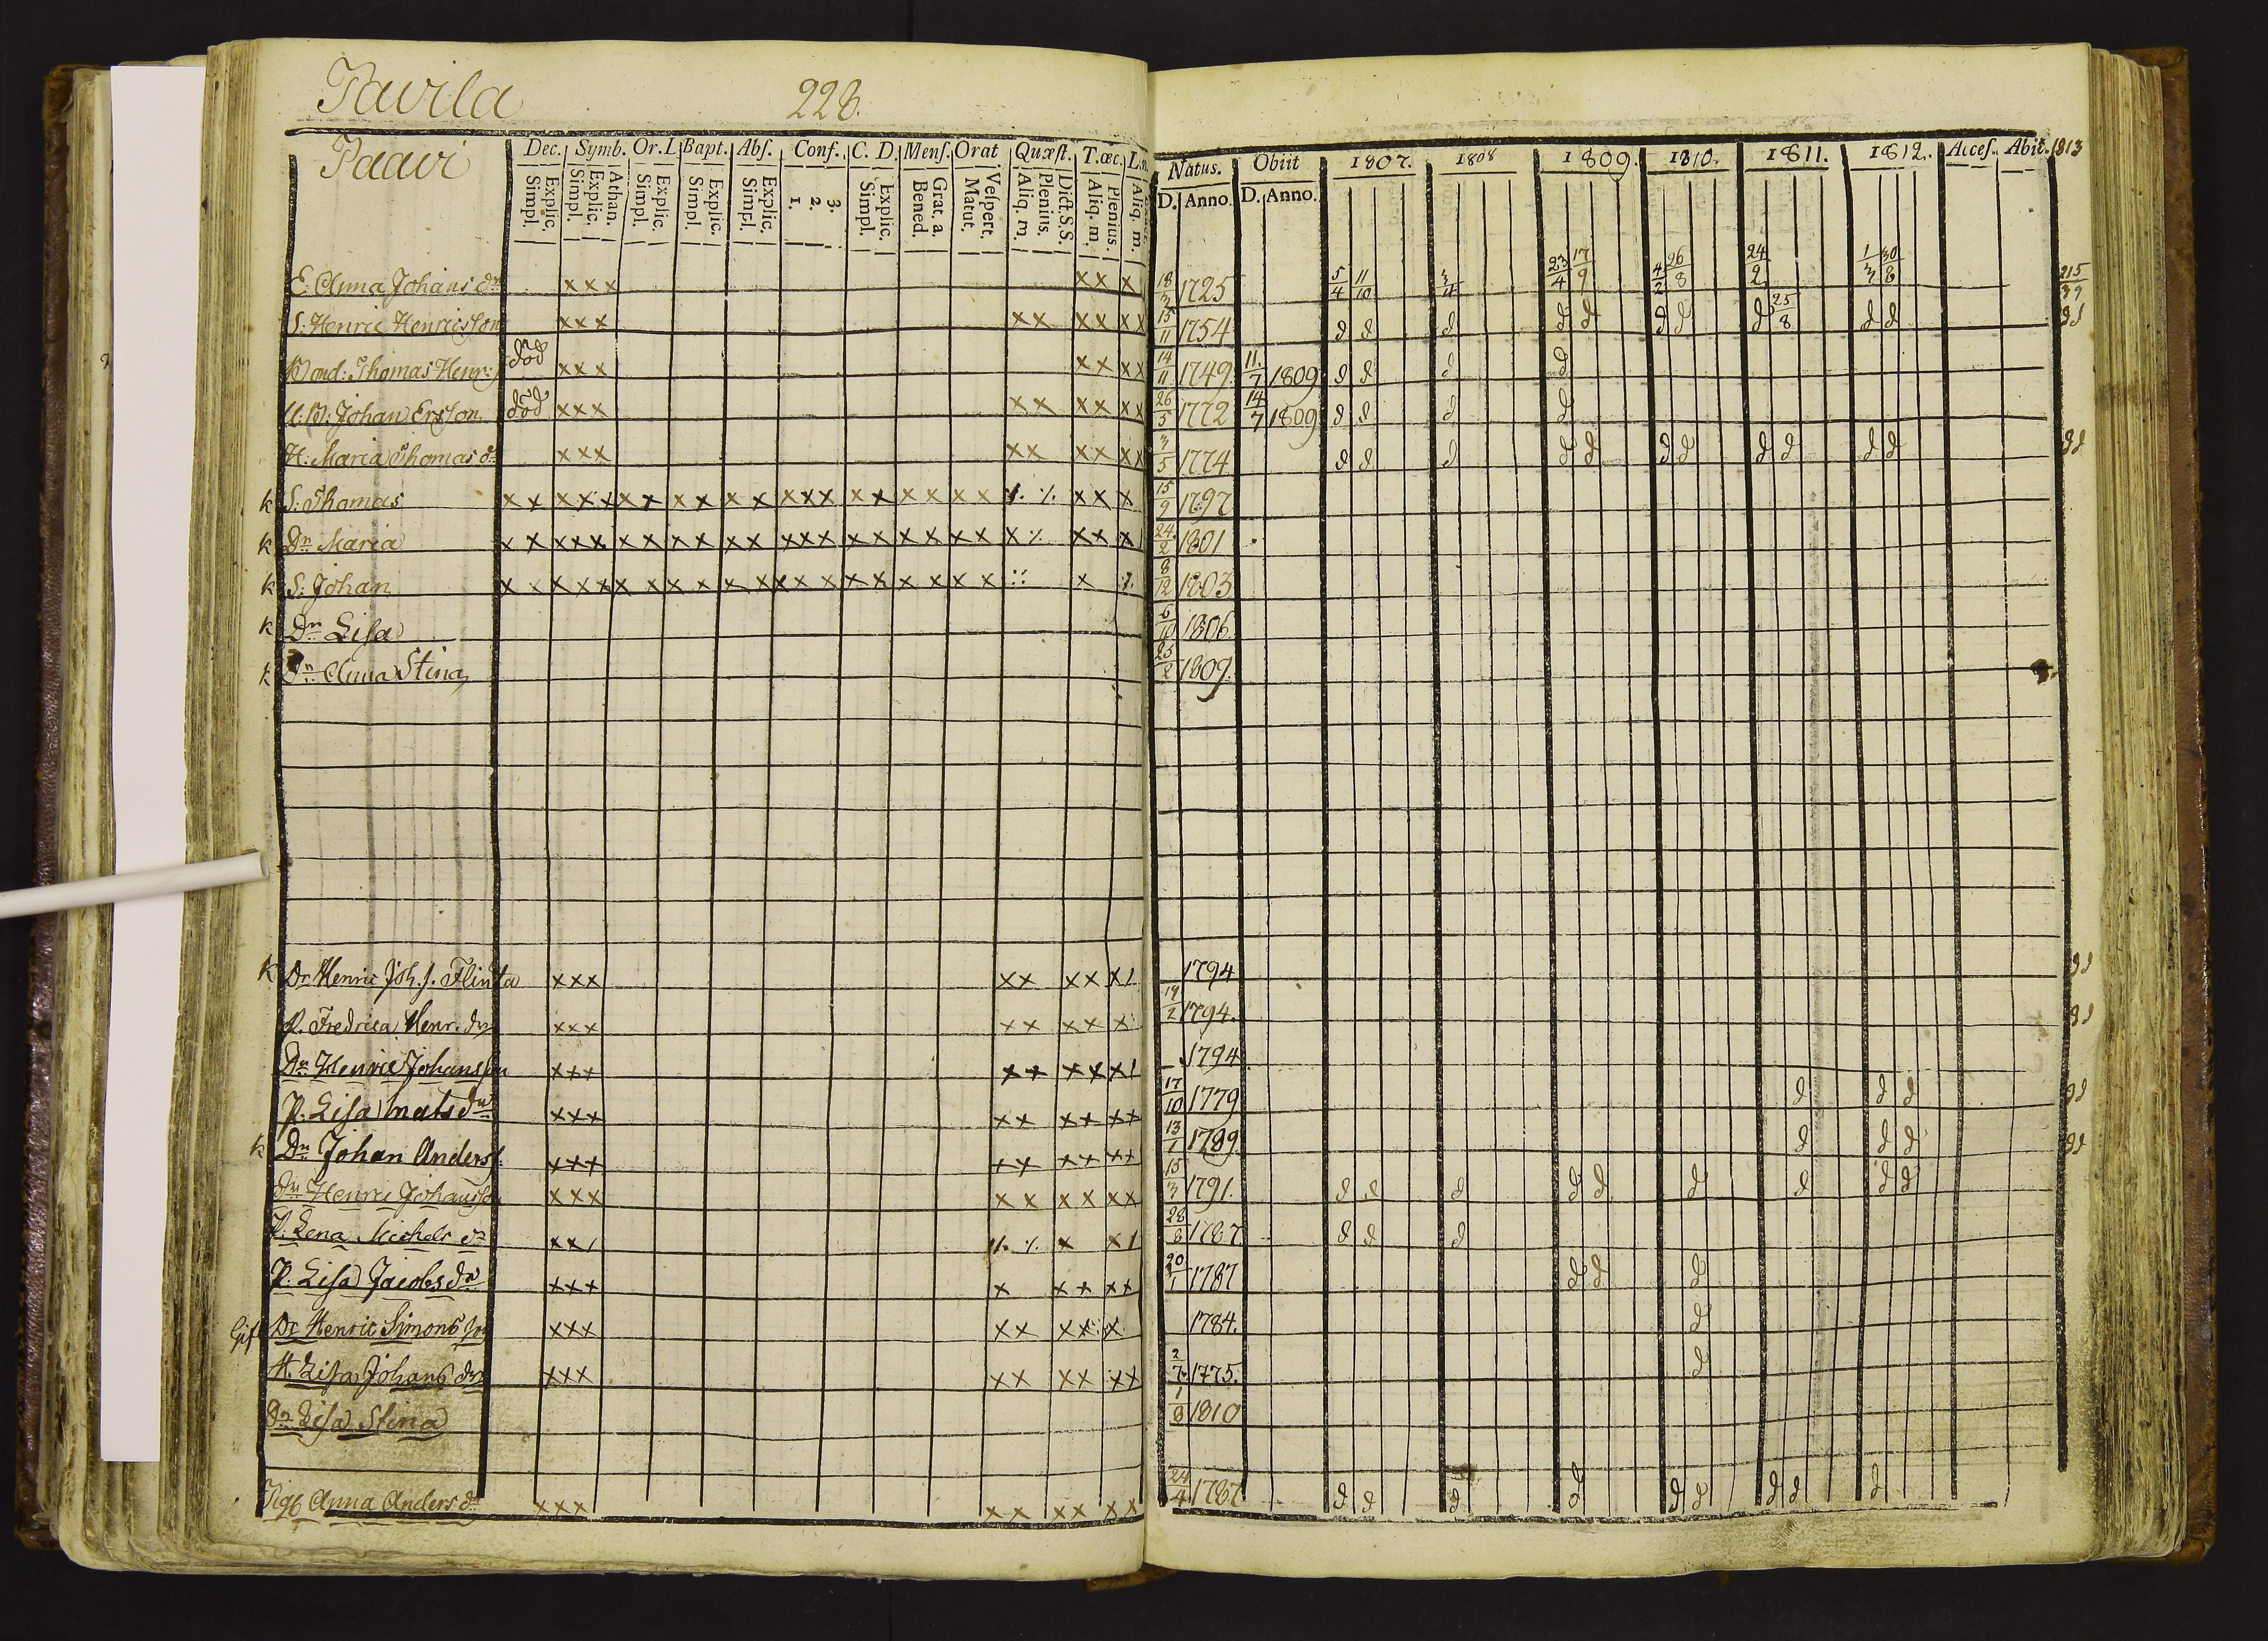 Pavila 228.
Paavi Dec. Symb. Or. L. Bapt. Abſ. Conf. C. D. Menſ. Orat Quæſt. T. œc. Natus. Obiit 1807. 1808 1809. 1810. 1811. 1812. Acceſ. Abit. 1813
Simpl. Explic. Simpl. Explic. Athan. Simpl. Explic. Simpl. Explic. Simpl. Explic. 1. 2. 3. Simpl. Explic. Bened. Grat. a. Matut. Veſpert. Aliq. m. Plenius. Dict. S.S. Aliq. m. Plenius. Aliq. m. D. Anno. D. Anno.
E. Anna Johans dr xxx xx x 18/3 1725 5/4 11/10 3/4 23/4 17/9 4/2 26/8 24/2 1/3 30/8
S. Henric Henricsson xxx xx xx xx 15/11 1754 d d d d d d d d 25/8 d d dd
Bond: Thomas Henr: död xxx xx xx 14/11 1749 11/7 1809 d d d d
M: Johan Ersson död xxx xx xx xx 26/5 1772 14/7 1809 d d d d
H: Maria Thomas dr xxx xx xx xx 3/5 1774 d d d d d d d d d d d dd
k S: Thomas xx xxx xx xx xx xxx xx xx xx ⁒ ⁒ xx x 15/9 1797
k Dr Maria xx xxx xx xx xx xxx xx xx xx x ⁒ xx x 24/2 1801
k S: Johan xx xxx xx xx xx xxx xx xx xx x 8/12 1803
k Dr Lisa 6/10 1806
k Dr Anna Stina 25/2 1809.
k Dr Henric Joh. s. Flinta xxx xx xx x/ 1794 dd
P. Fredrica Henr. dr xxx xx xx x 19/2 1794. dd
Dr Henric Johansson xxx xx xx x/ 1794
P. Lisa Mats dr xxx xx xx xx 17/10 1779 d d d dd
k Dr Johan Anders s. xxx xx xx xx 13/1 1789. d d d dd
Dr Henric Johansson xxx xx xx xx 15/3 1791. d d d d d d d d d
P. Lena Michels dr xx/ ⁒ ⁒ x x/ 28/8 1787 d d d
P. Lisa Jacobs dr xxx x xx xx 20/1 1787 d d d
Gift Dr Henric Simons son xxx xx xx x 1784. d
H. Lisa Johans dr xxx xx xx xx 2/7 1775. d
Dr Lisa Stina 1/8 1810
Pig Anna Anders dr xxx xx xx xx 24/4 1787 d d d d d d d d d